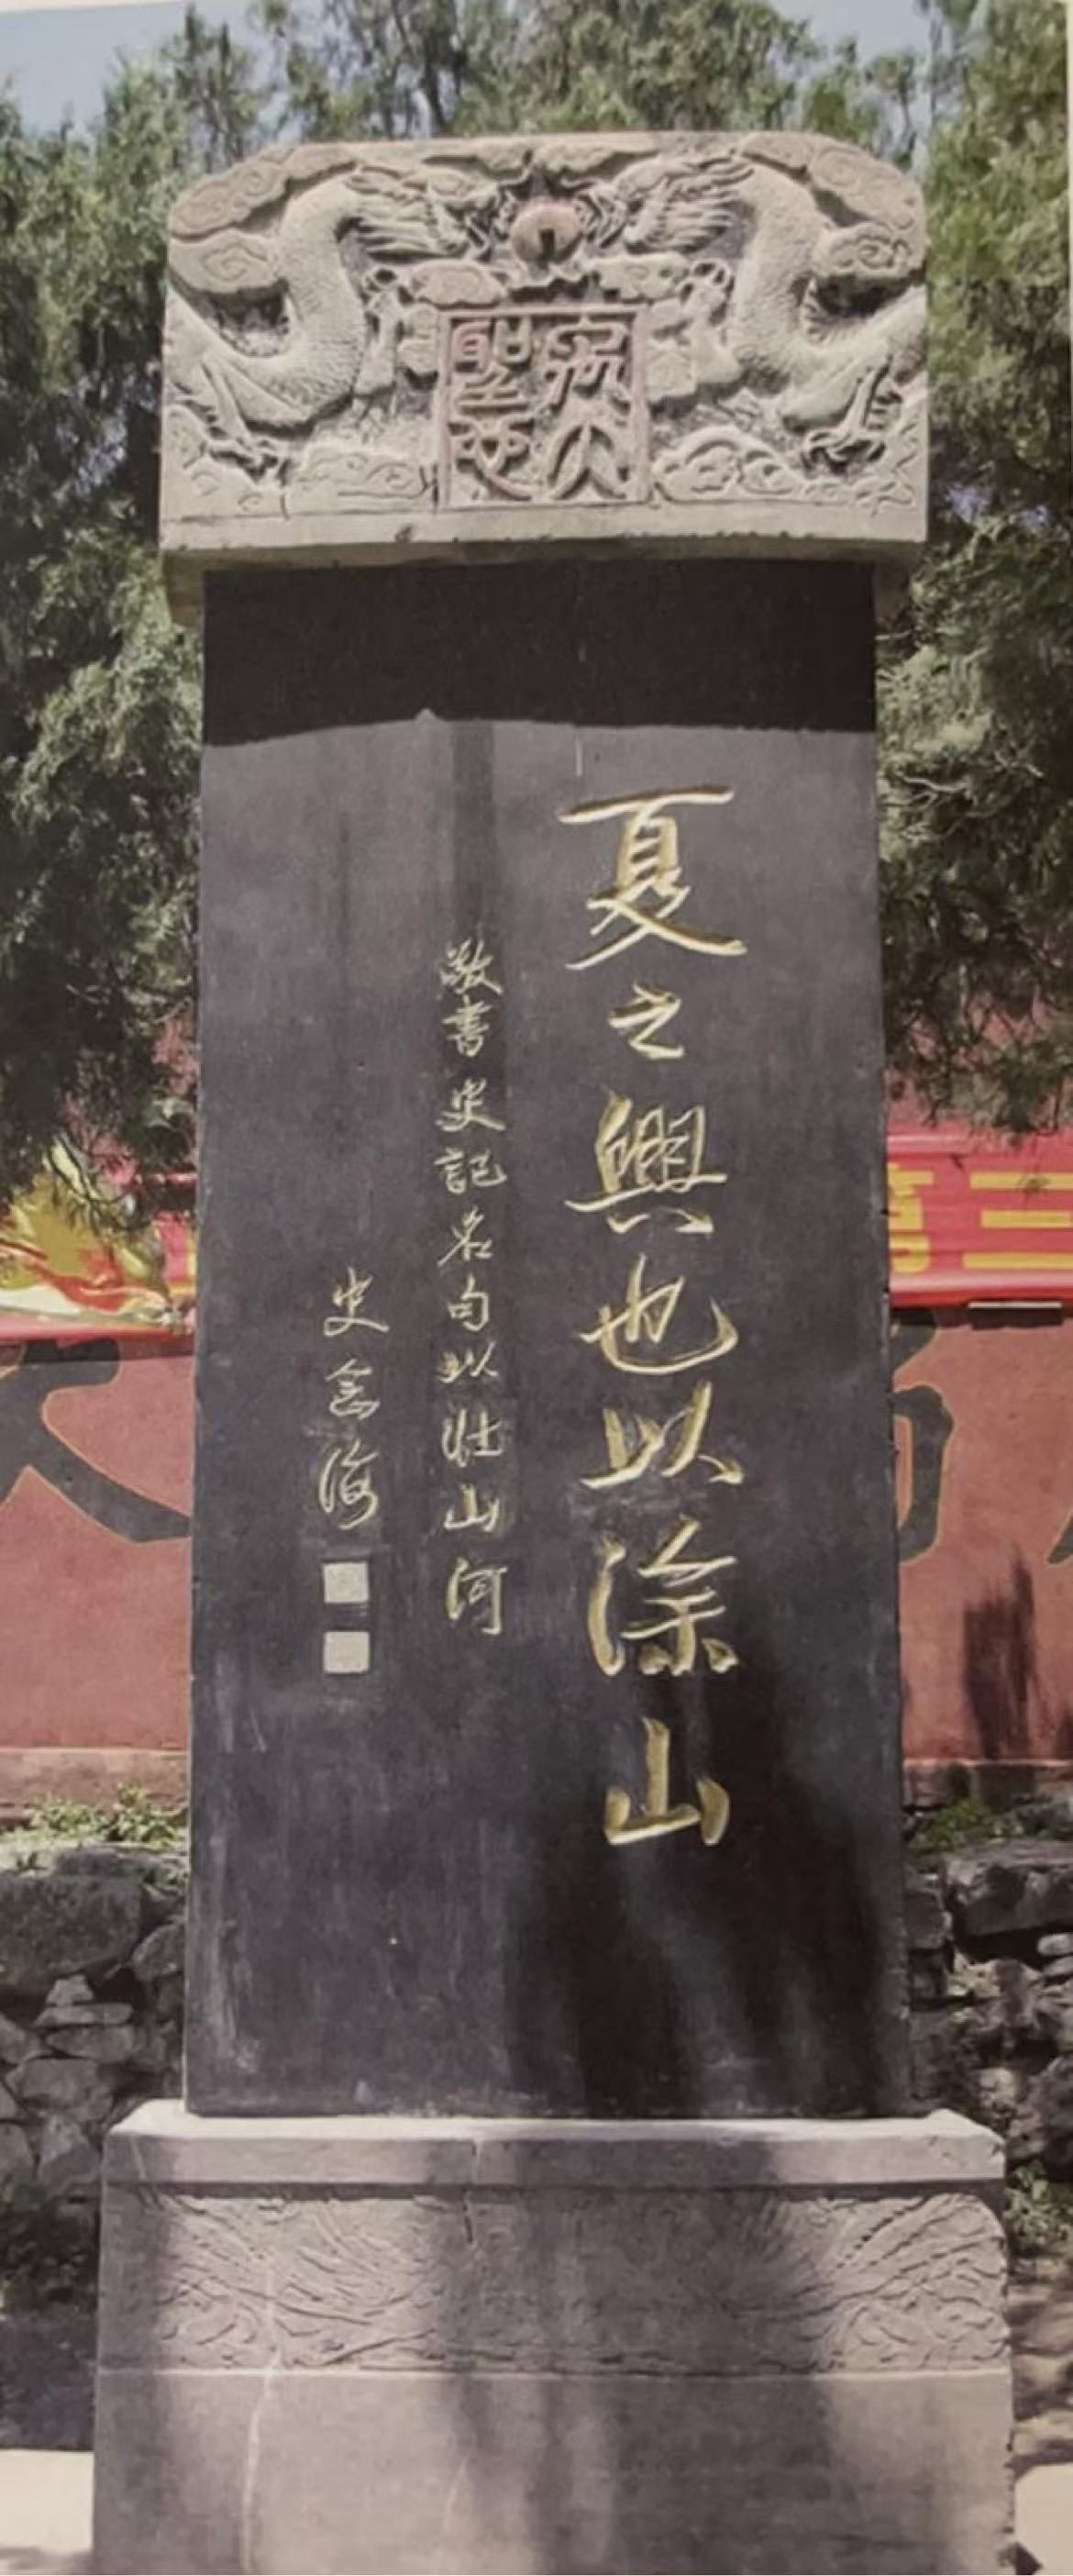 夏之興也以涂山
敬書史記名句以壮山河
史念海
第三